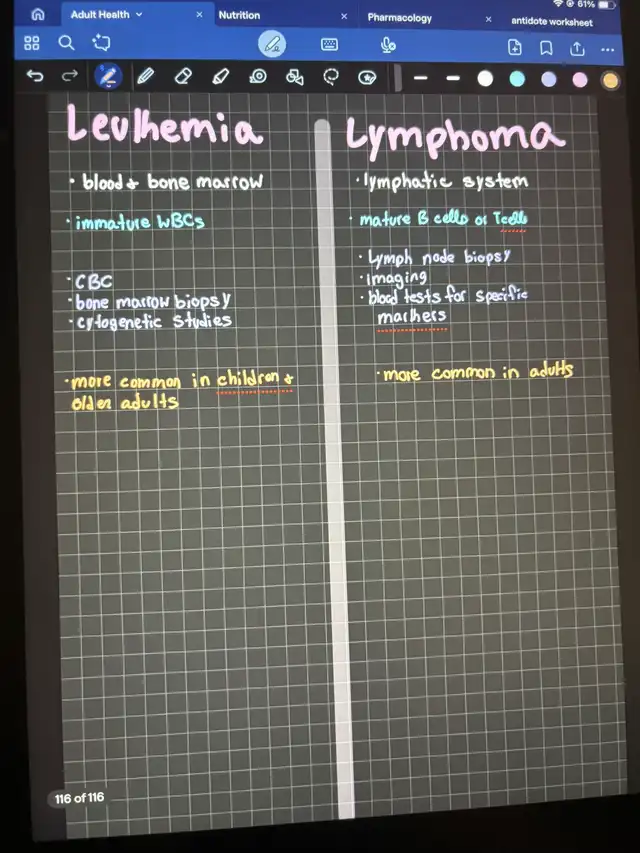 61%
Adult Health
Nutrition
Pharmacology
antidote worksheet
Leukemia
• blood & bone marrow
• immature WBCs
• CBC
• bone marrow biopsy
• cytogenetic studies
• more common in children &
older adults
Lymphoma
• lymphatic system
• mature B cells or T cells
• Lymph node biopsy
• imaging
• blood tests for specific
markers
• more common in adults
116 of 116